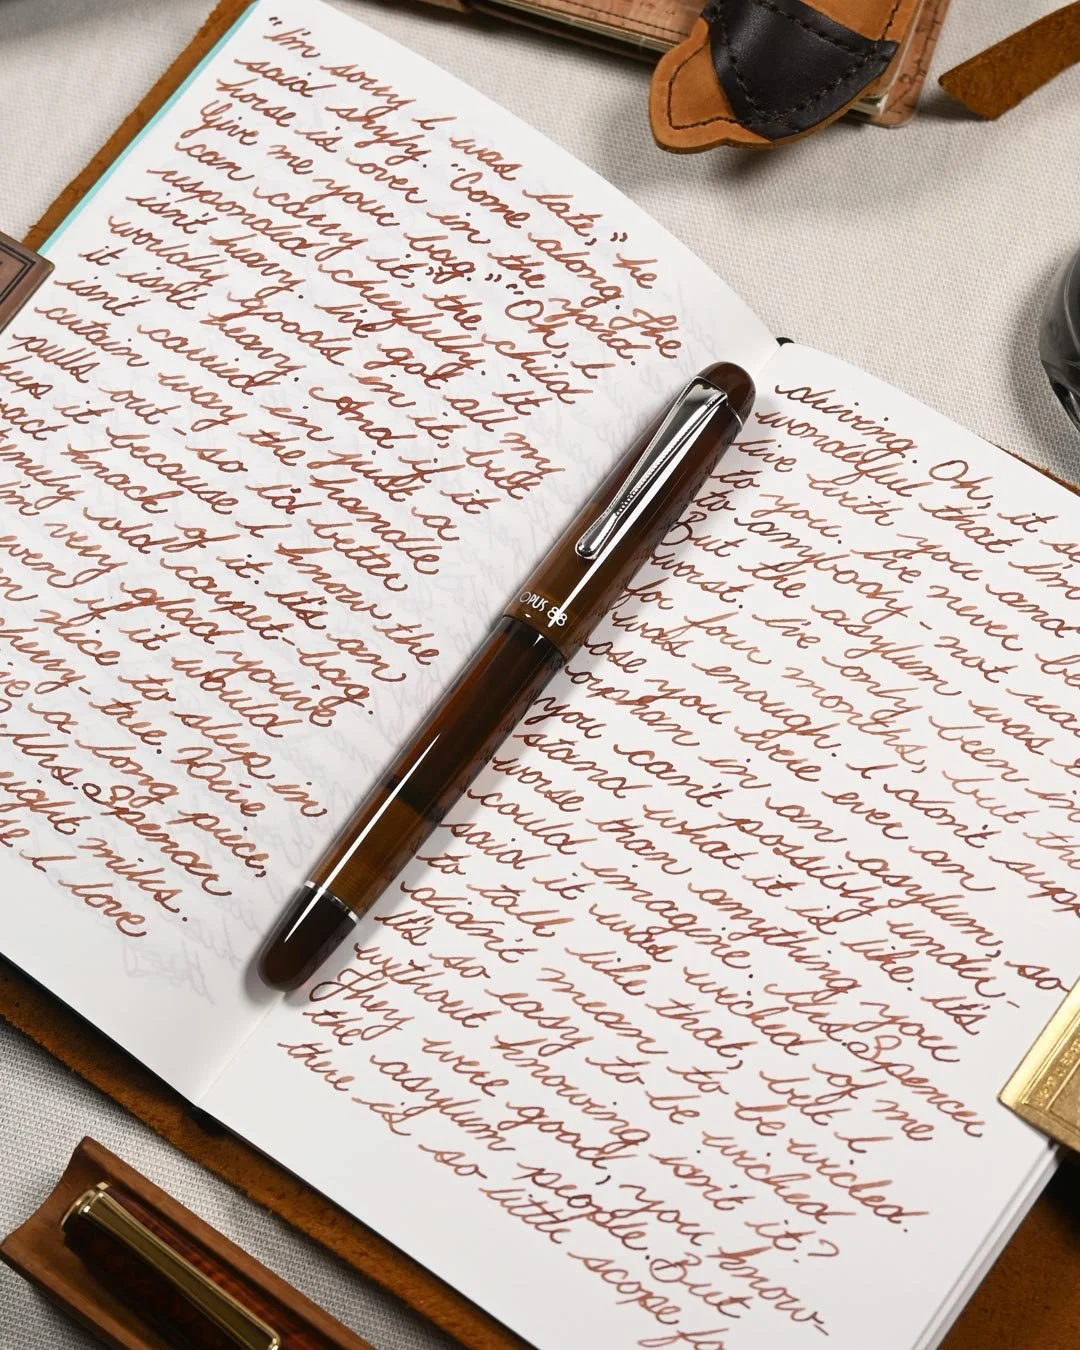 "I'm sorry I was late," he
said shyly. "Come along. The
horse is over in the yard.
Give me your bag." "Oh, I
can carry it," the child
responded cheerfully. "It
isn't heavy. I've got all my
worldly goods in it, but
it isn't heavy. And if it
isn't carried in just a
certain way the handle
pulls out-so I'd better
keep it because I know the
exact knack of it. It's an
old carpet-bag.
I'm very glad you've
even if it would
nice to sleep in
We've
a long piece,
Mrs. Spencer
eight miles.
I love
driving. Oh, it
wonderful that
live with you and
to you. I've never
to anybody-not
But the asylum was
worst. I've only been in
for four months, but
was enough. I don't
you were ever an
orphan in an asylum, so
you can't possibly under-
stand what it is like. It's
worse than anything you
could imagine. Mrs. Spencer
said it was wicked of me
to talk like that, but I
didn't mean to be wicked.
It's so easy to be wicked
without knowing isn't it?
They were good, you know-
the asylum people. But
there is so little scope fo
OPUS 88